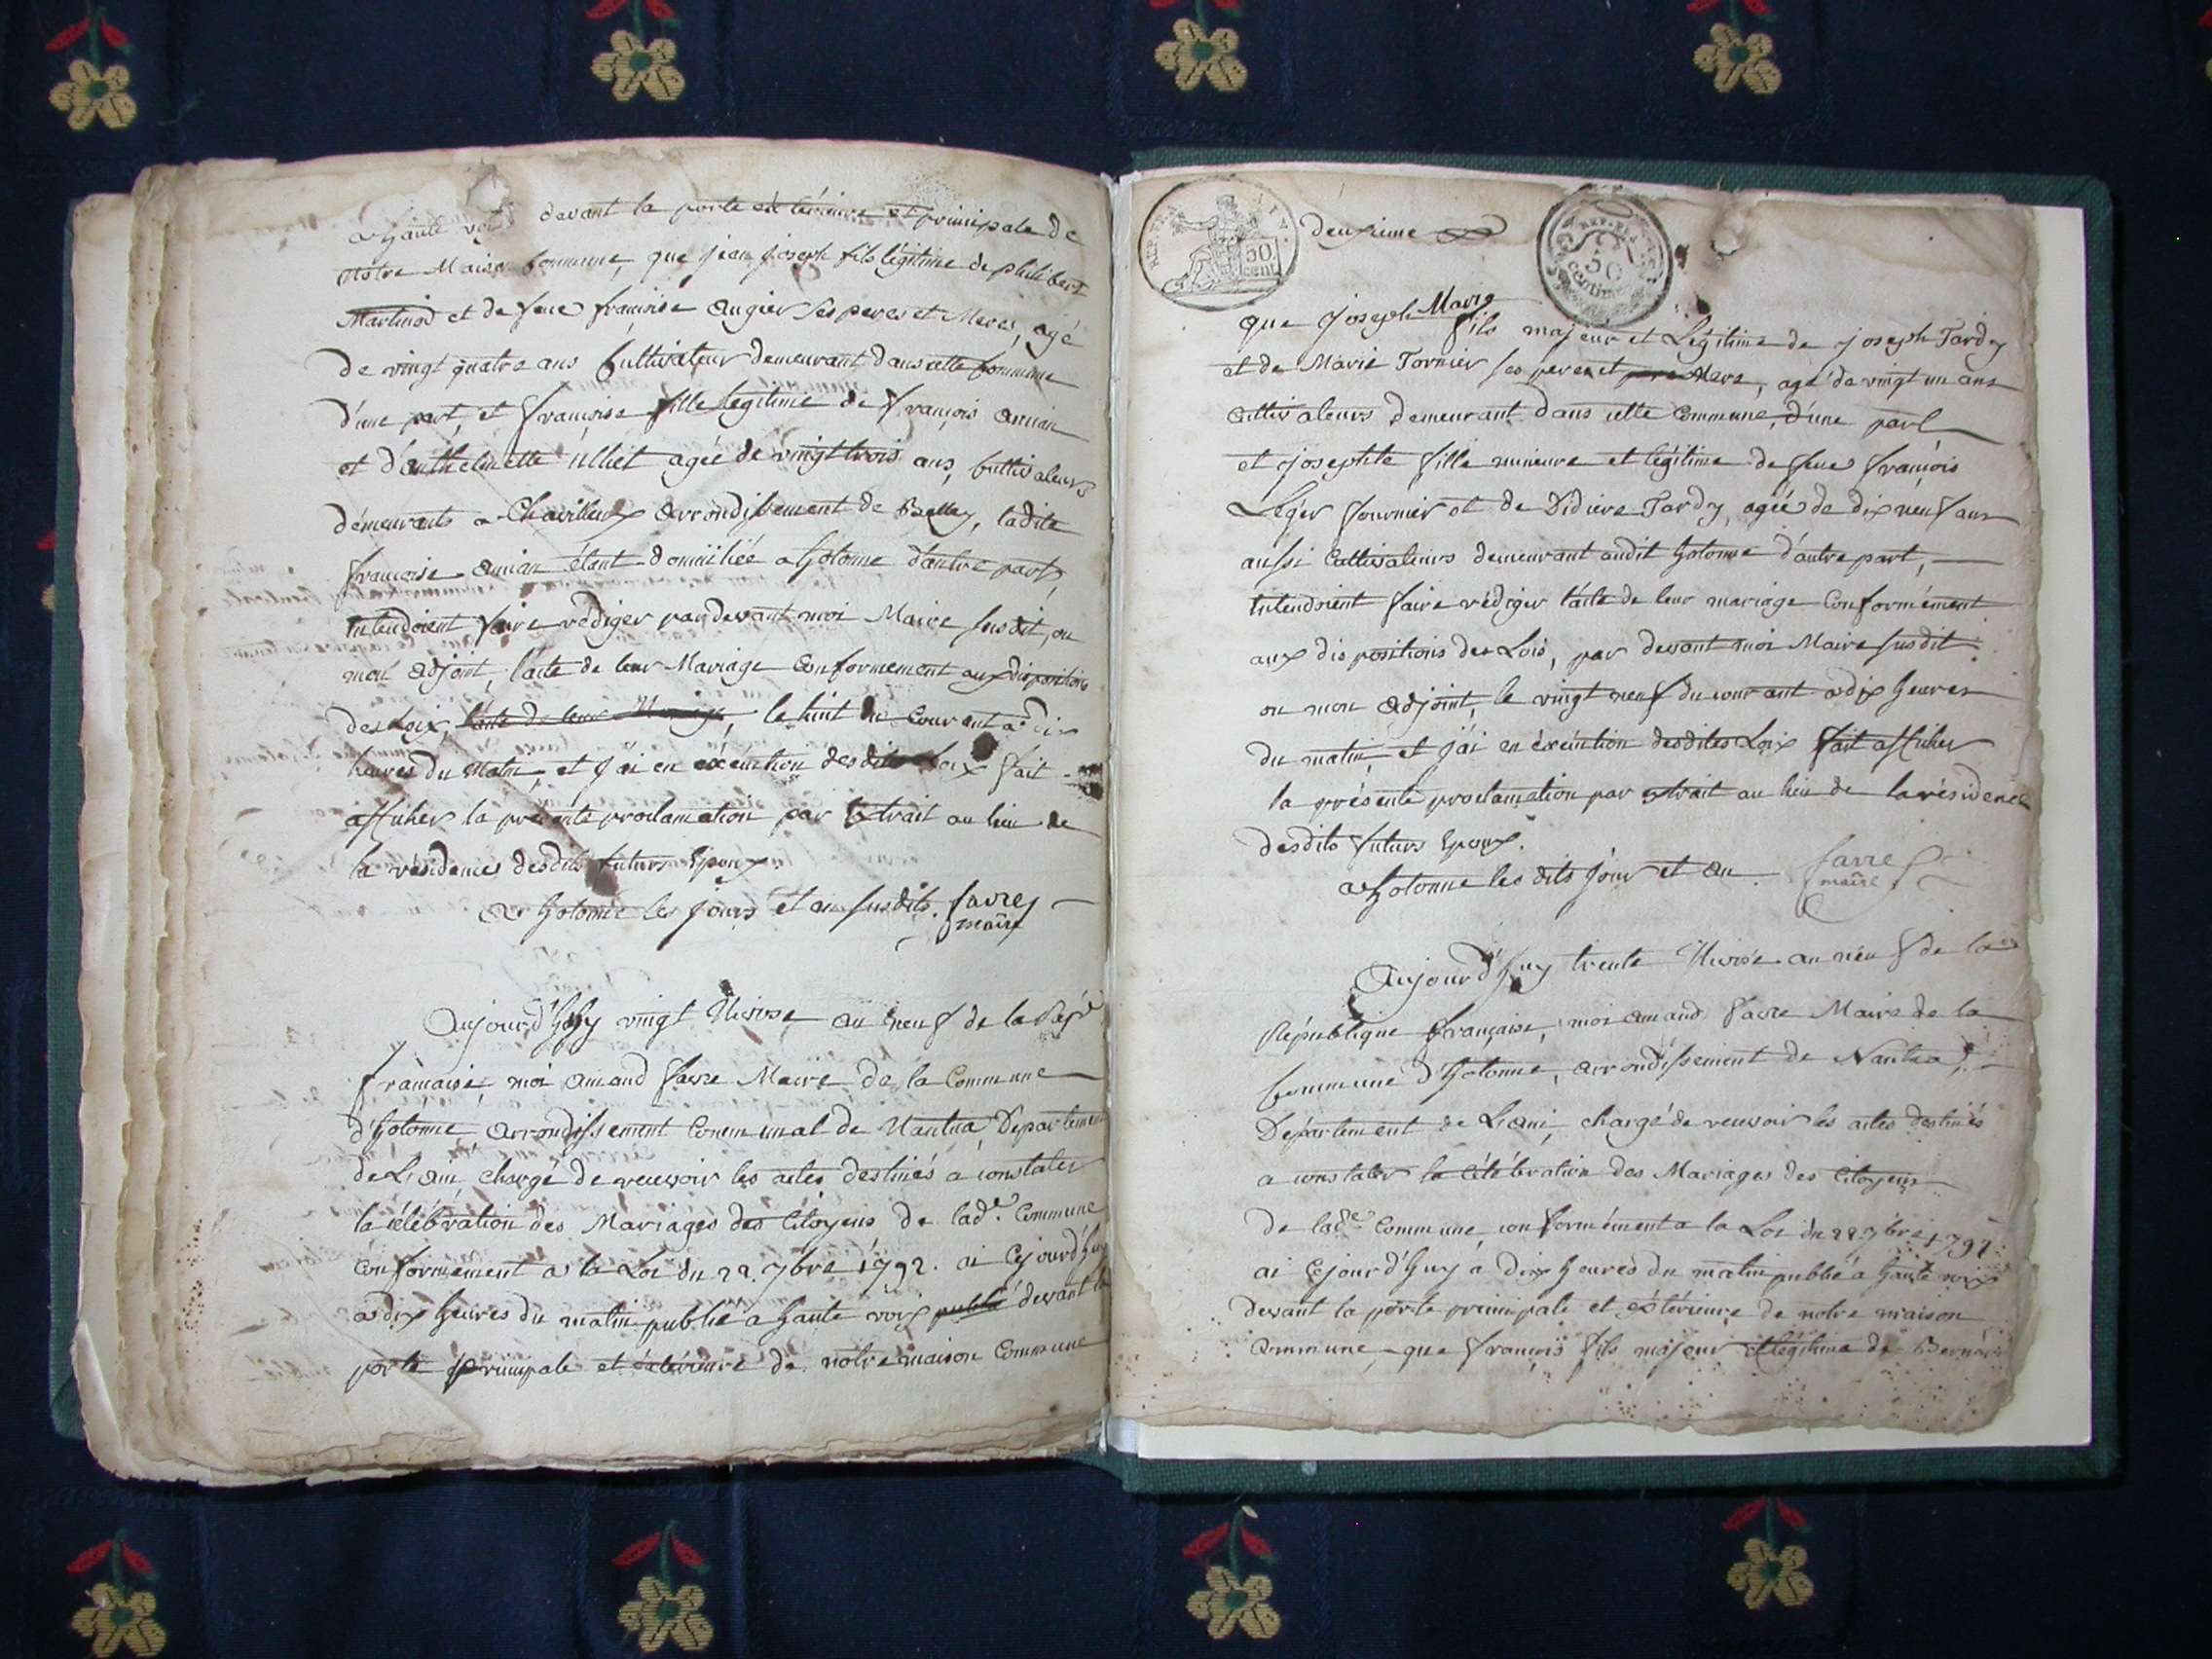 a haute voix devant la porte extérieure et principale de
notre Maison Commune, que jean joseph fils légitime de philibert
Martinod et de feue françoise augier ses peres et Meres, agé
de vingt quatre ans Cultivateur demeurant dans cette Commune
d'une part, et françoise fille legitime de françois
et d'anthelmette agée de vingt trois ans, Cultivateurs
démeurants a Chavillieux arrondissement de Belley, ladite
françoise étant domiciliée a hotonne d'autre part,
intendoient faire rédiger par devant moi Maire susdit, ou
mon adjoint, l'acte de leur Mariage Conformement aux dispositions
des Loix, l'acte de leur Mariage, le huit du Courant a dix
heures du matin, et j'ai en exécution desdites Loix fait
afficher la présente proclamation par Extrait au lieu de
la résidence desdits futurs Epoux.
a hotonne les jours et an susdits. favre
maire
Aujourd'huy vingt Nivose an neuf de la Rép
francaise, moi amand favre Maire de la Commune
d'hotonne, arrondissement Communal de Nantua, Département
de L'ain, chargé de recevoir les actes destinés a constater
la célébration des Mariages des Citoyens de lade. Commune
Conformement a la Loi du 22. 7bre 1792. ai Cejourd'huy
a dix heures du matin publié a haute voix publié devant la
porte principale et extérieure de notre maison Commune
REP. FRA. 50 cent
deuxieme
REP. FRA. 50 centimes
que joseph Marie fils majeur et Légitime de joseph Tardy
et de Marie Tornier ses peres et pere Mere, agé de vingt un ans
Cultivateurs demeurant dans cette Commune, d'une part
et josephte fille mineure et légitime de feue françois
Léger fournier et de Didiere Tardy, agée de dix neuf ans
aussi Cultivateurs demeurant audit hotonne d'autre part,
intendoient faire rédiger l'acte de leur mariage Conformément
aux dispositions des Lois, par devant moi Maire susdit
ou mon adjoint, le vingt neuf du courant a dix heures
du matin, et j'ai en éxécution desdites Loix fait afficher
la présente proclamation par extrait au lieu de la résidence
desdits futurs Epoux.
a hotonne les dits jour et an. favre
maire
Aujourd'huy trente Nivose an neuf de la
République française, moi amand favre Maire de la
Commune d'hotonne, arrondissement de Nantua,
Département de L'ain, chargé de recevoir les actes destinés
a constater la célébration des Mariages des Citoyens
de lade. Commune, conformément a la Loi du 22 7bre 1792
ai Cejourd'huy a dix heures du matin publié a haute voix
devant la porte principale et extérieure de notre maison
Commune que françois fils majeur et légitime de